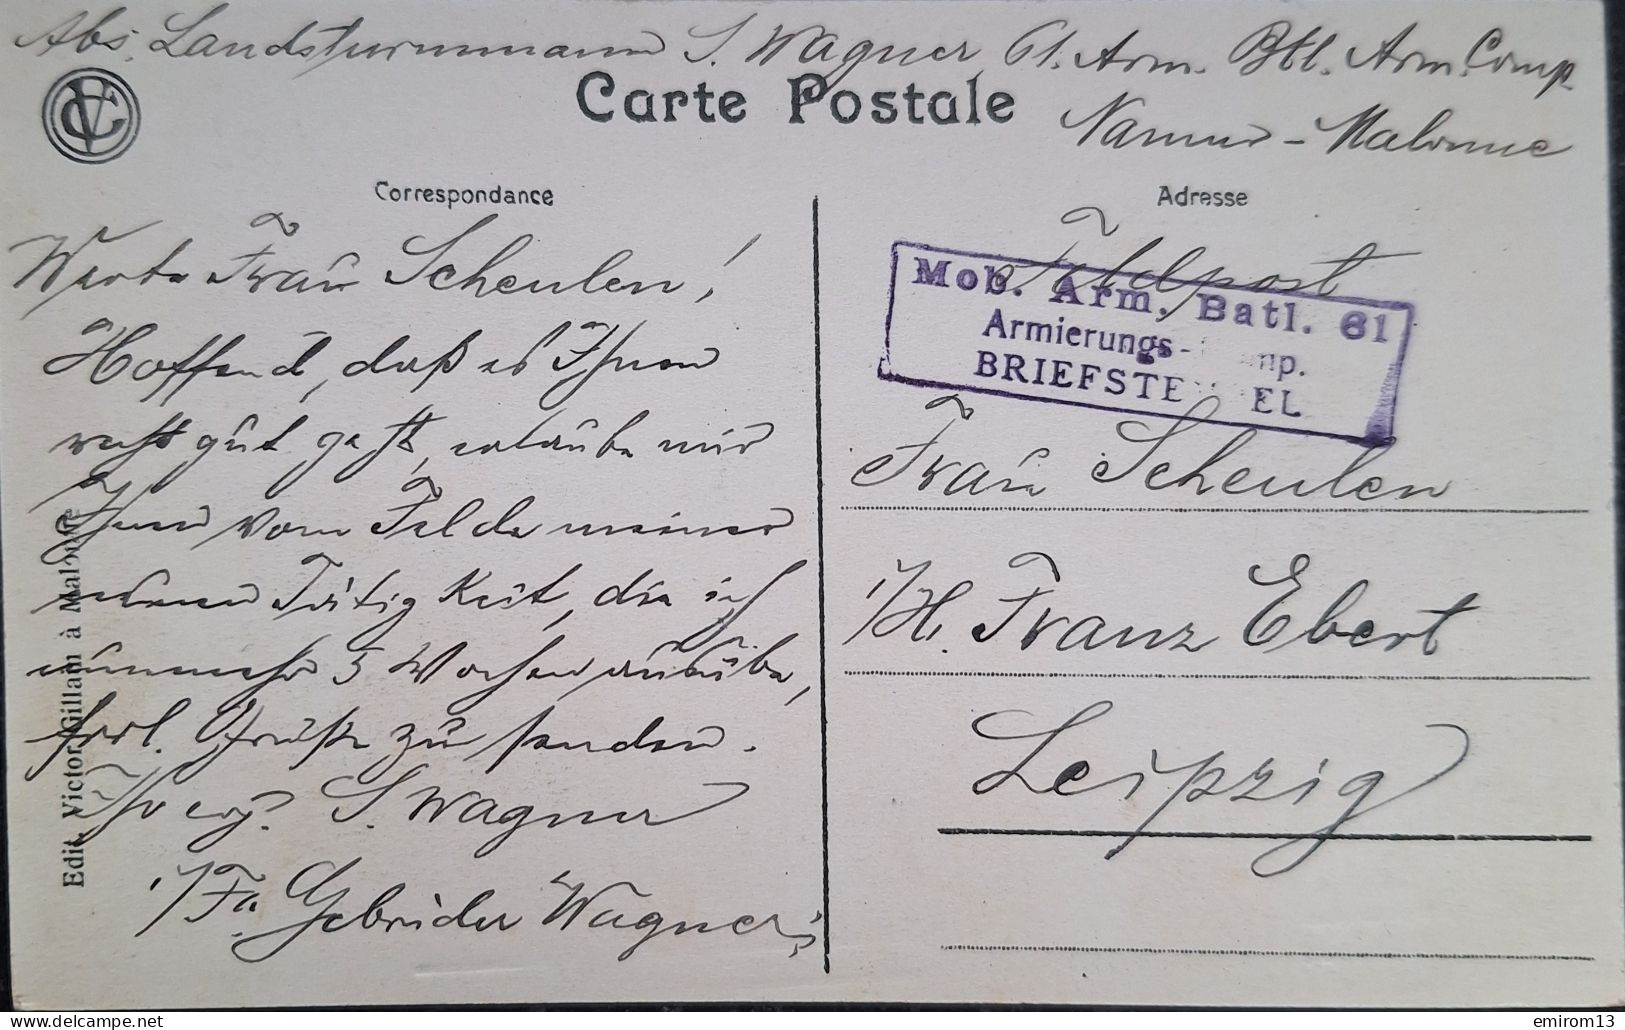 Abs. Landsturmmann S. Wagner, 61. Arm. Btl. Arm. Comp
Namur - Malonne
Carte Postale
VC
Correspondance
Adresse
Werte Frau Scheulen!
Hoffend, daß es Ihnen
recht gut geht, erlaube mir
Ihnen vom Felde meiner
Tätigkeit, die ich
nunmehr 5 Wochen ausübe,
frdl. Grüße zu senden.
Ihr erg. S. Wagner
i/Fa. Gebrüder Wagner
Edit. Victor Gillain à Malonne
Feldpost
Mob. Arm. Batl. 61
Armierungs-
BRIEFSTE EL
Frau Scheulen
i/H. Franz Ebert
Leipzig
delcampe.net
emirom13